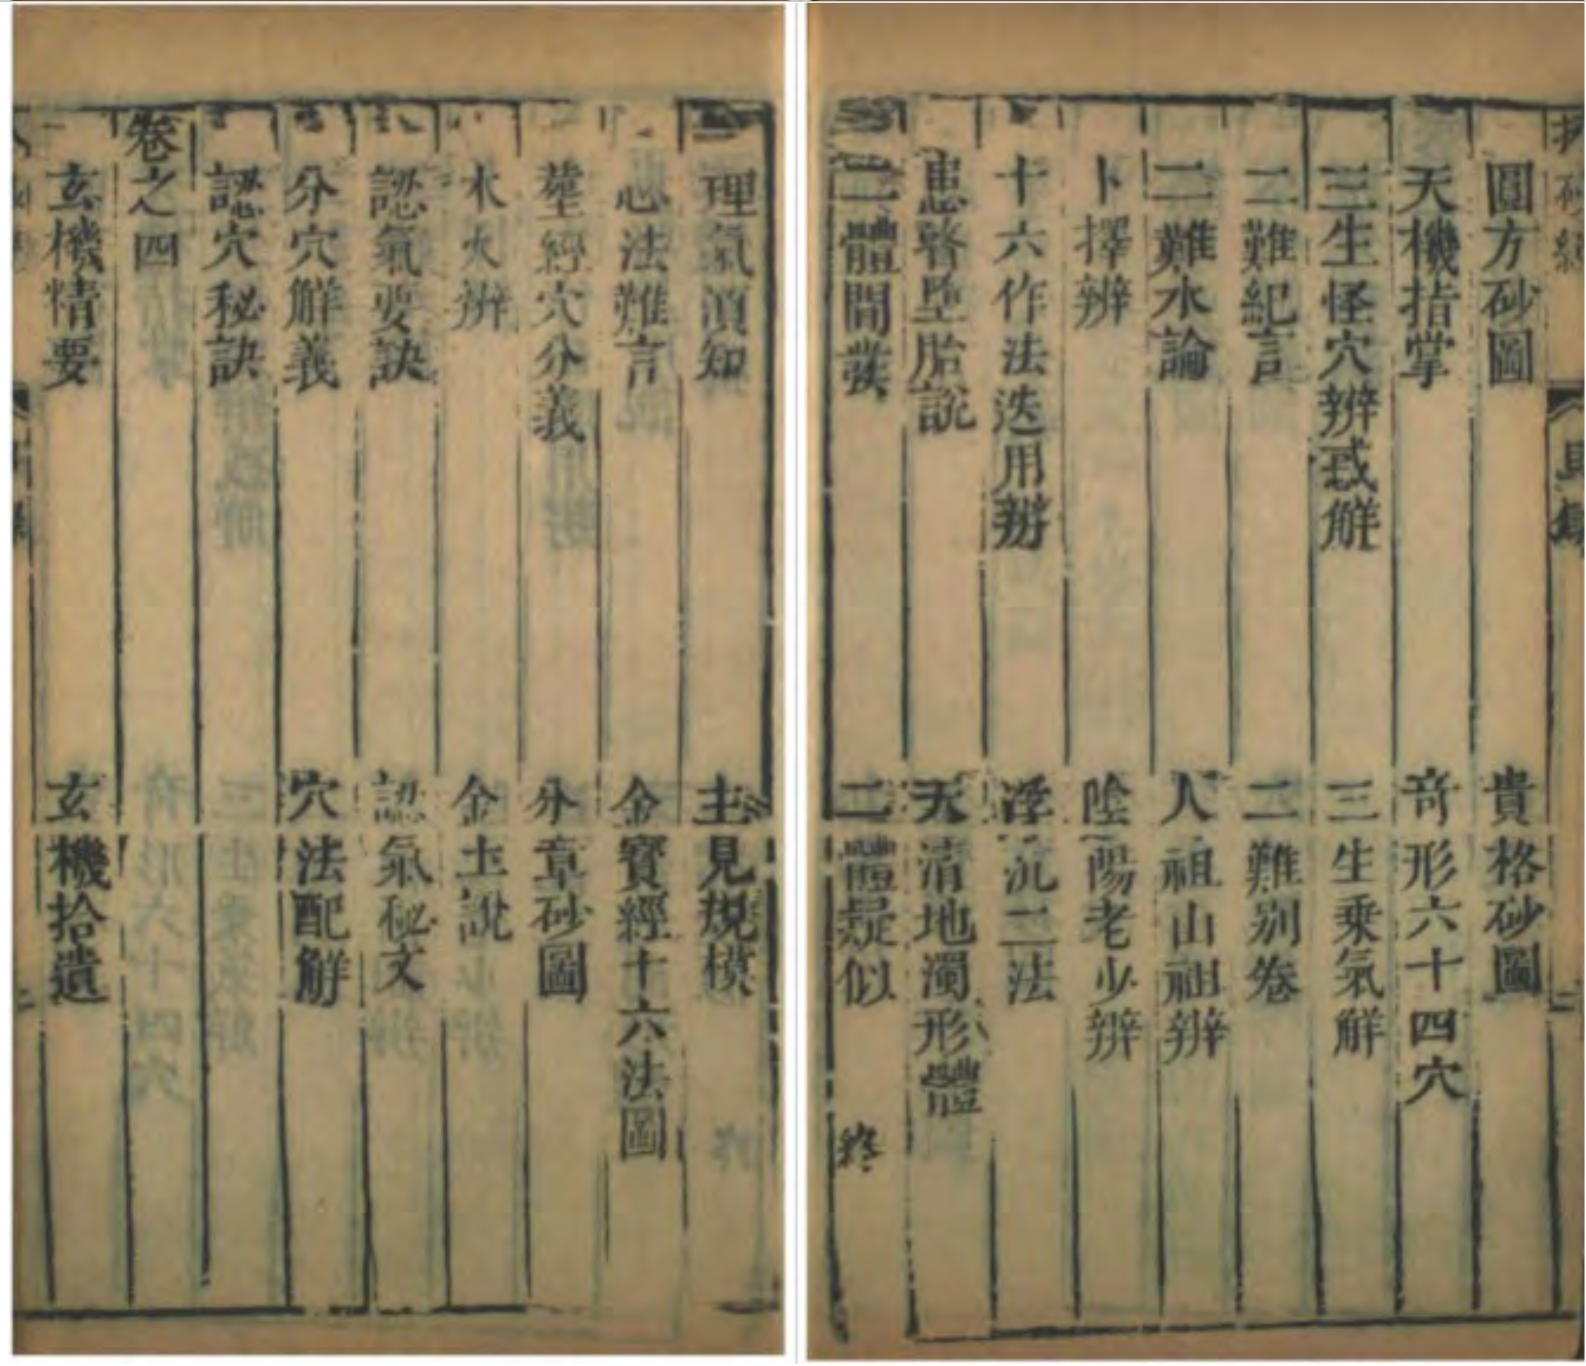 理氣須知 主見規模
心法難言 金寶經十六法圖
葬經穴分義 分章砂圖
水火辨 金土說
認氣要訣 認氣秘文
分穴觧義 穴法配觧
認穴秘訣
卷之四
玄機情要 玄機拾遺
圓方砂圖 貴格砂圖
天機指掌 竒形六十四穴
三生怪穴辨惑觧 三生乗氣觧
二難紀言 二難别卷
二難水論 人祖山祖辨
卜擇辨 陰陽老少辨
十六作法迭用辨 浮沉二法
胎說 天清地濁形體
二體間發 二體疑似 終